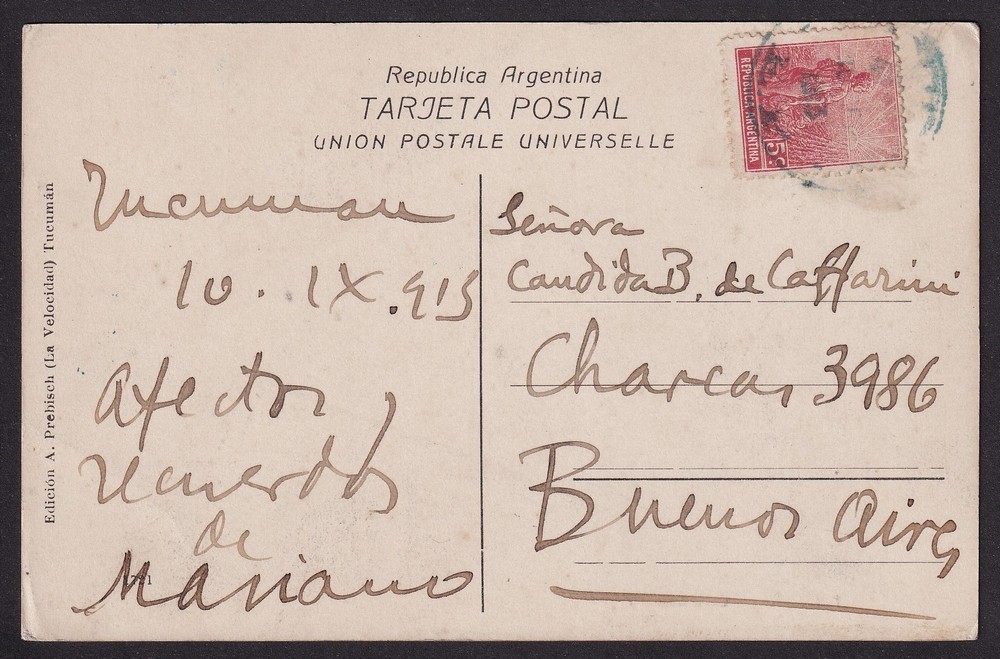 Republica Argentina
TARJETA POSTAL
UNION POSTALE UNIVERSELLE
REPUBLICA ARGENTINA
5
Edición A. Prebisch (La Velocidad) Tucumán
Tucuman
10. IX. 913
Afectos y
recuerdos
de
Mariano
Señora
Candida B. de Caffarini
Charcas 3986
Buenos Aires